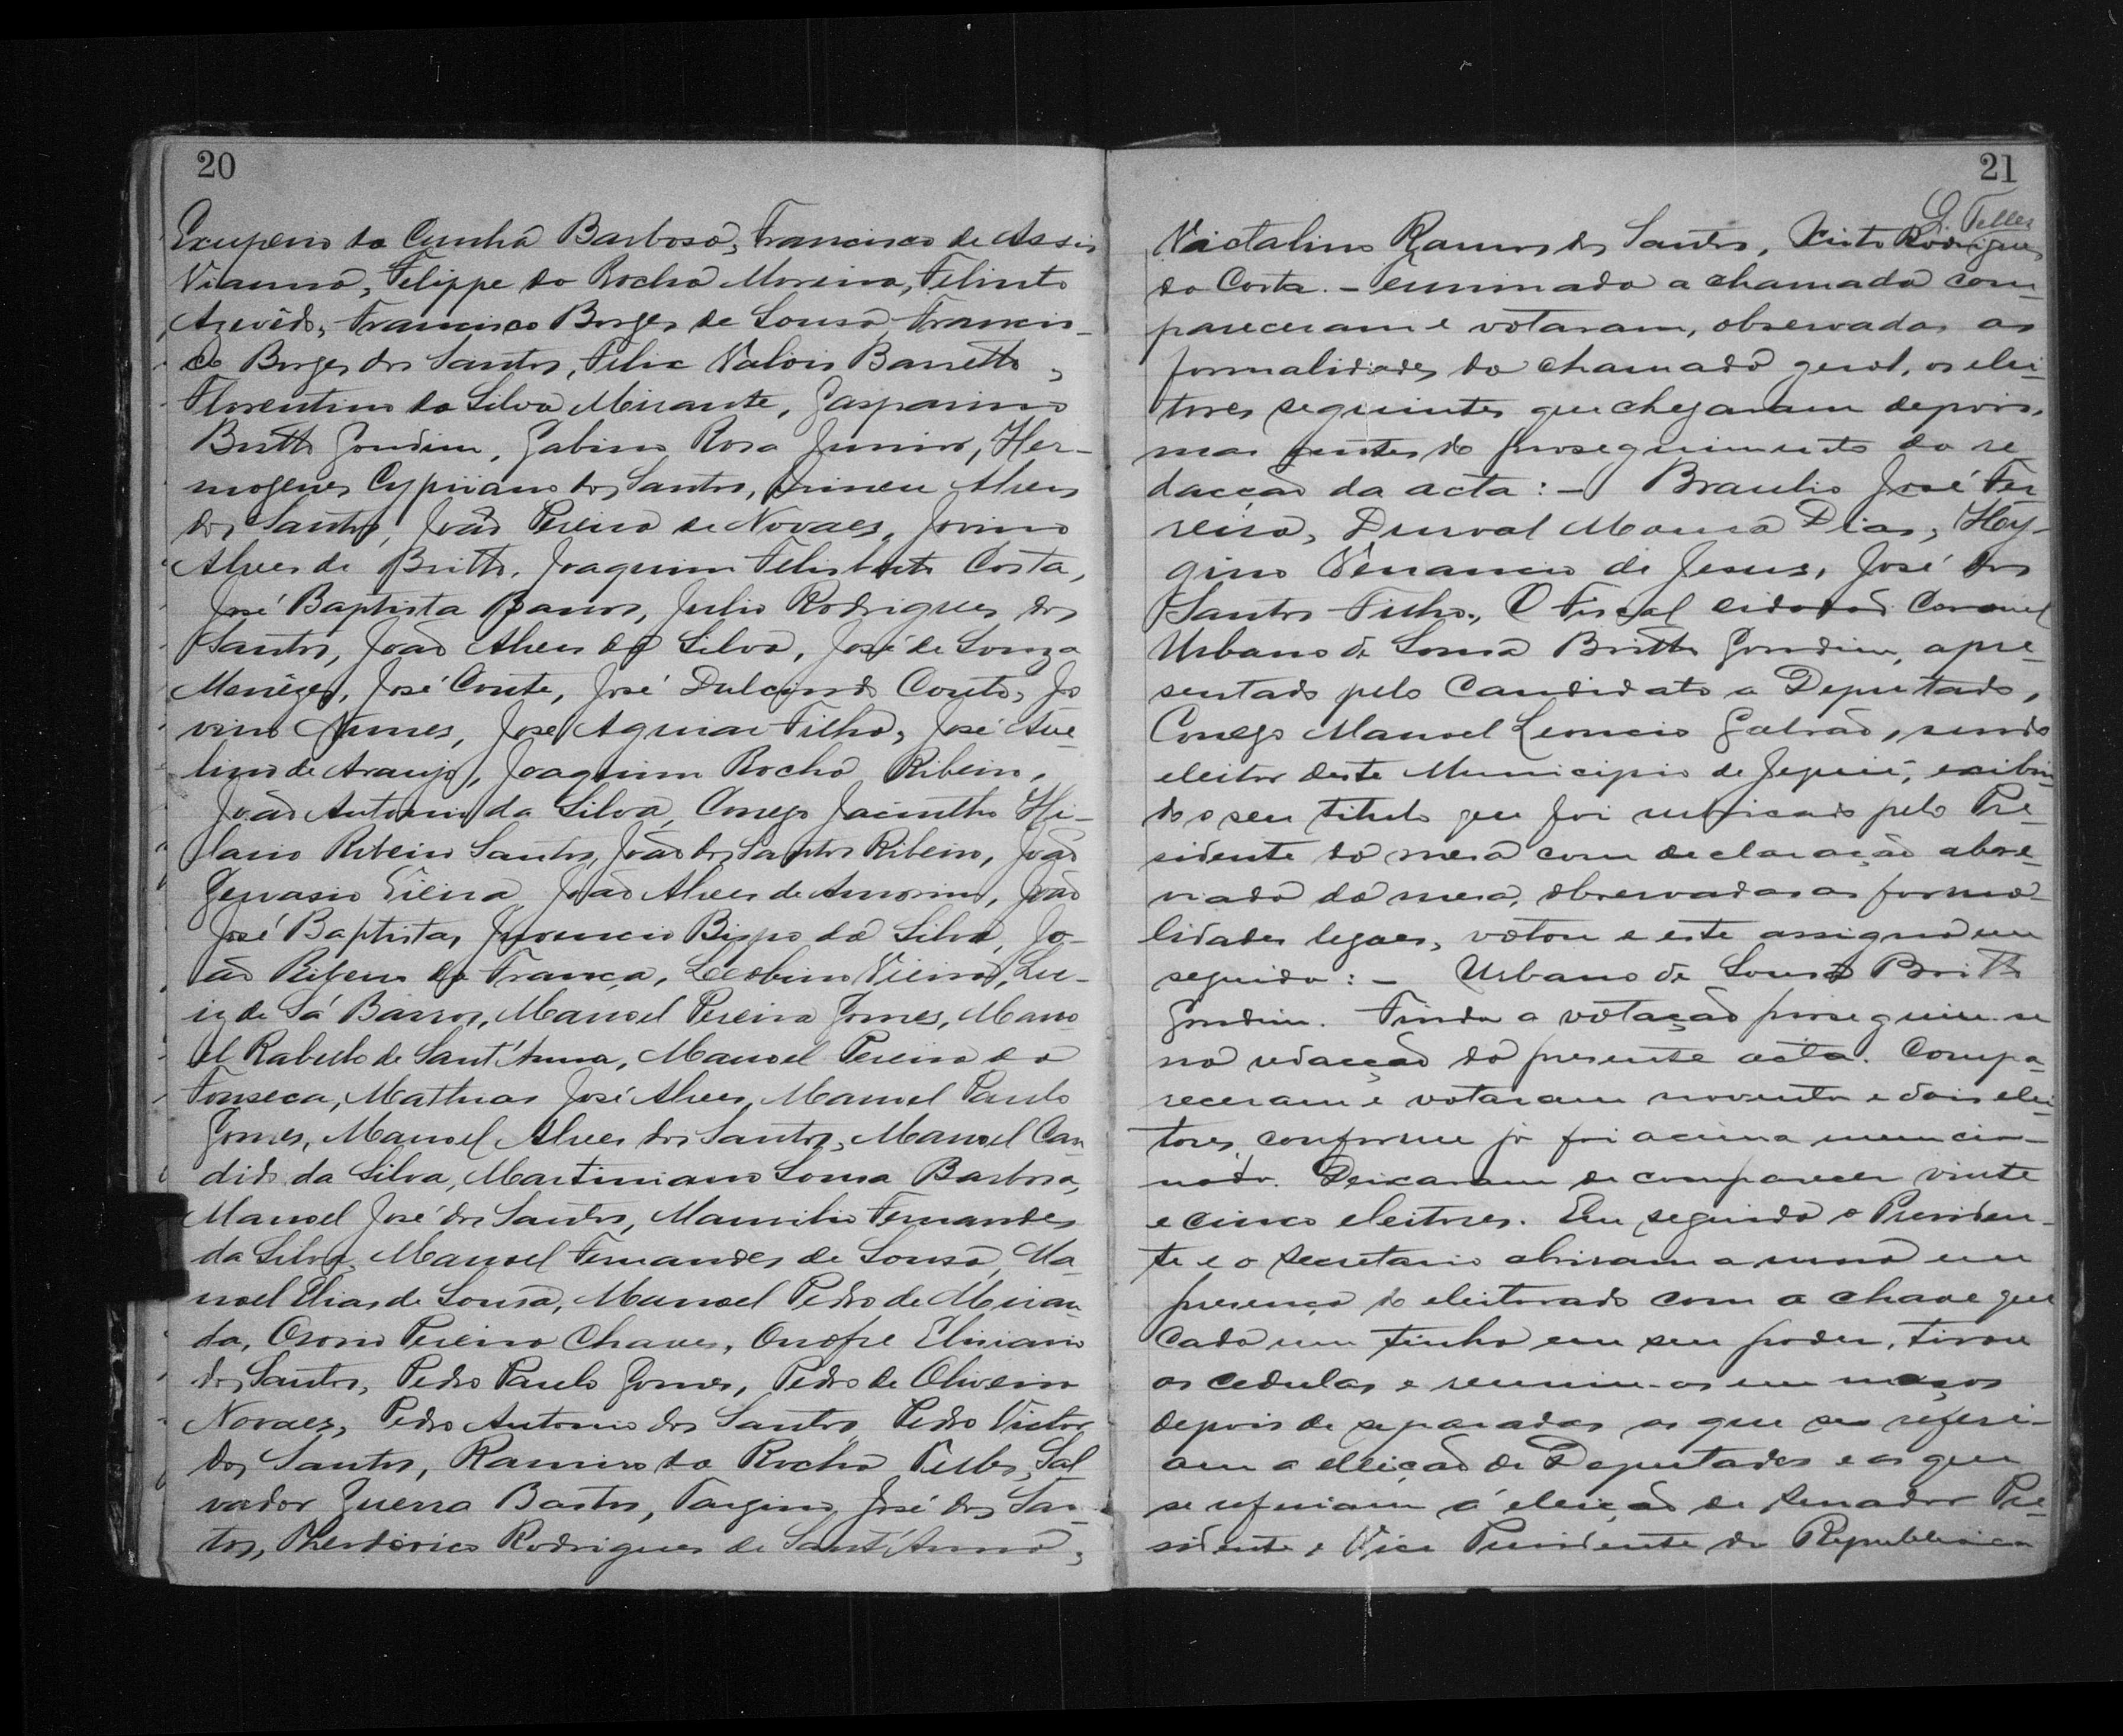 20
Exuperio da Cunha Barbosa, Francisco de Assis
Vianna, Felippe da Rocha Moreira, Felinto
Azevêdo, Francisco Borges de Sousa, Francis-
co Borges dos Santos, Felix Valois Barretto,
Florentino da Silva Mirante, Gasparino
Britto Gondim, Gabino Rosa Junior, Her-
mogenes Cypriano dos Santos, Irineu Alves
dos Santos, João Pereira de Novaes, Jovino
Alves de Britto, Joaquim Felisberto Costa,
José Baptista Barros, Julio Rodrigues dos
Santos, João Alves da Silva, José de Souza
Menêzes, José Couto, José Dulcindo Couto, Jo
vino Nunes, José Aguiar Filho, José Ave-
lino de Araujo, Joaquim Rocha Ribeiro,
João Antonio da Silva, Conego Jacintho Hi-
lario Ribeiro Santos, João dos Santos Ribeiro, João
Gervasio Vieira, João Alves de Amorim, João
José Baptista, Juvencio Bispo da Silva, Jo-
ão Ribeiro da França, Leobino Vieira, Lu-
iz de Sá Barros, Manoel Pereira Gomes, Mano
el Rabello de Sant'Anna, Manoel Pereira da
Fonseca, Mathias José Alves, Manoel Paulo
Gomes, Manoel Alves dos Santos, Manoel Can
dido da Silva, Martiniano Sousa Barbosa,
Manoel José dos Santos, Mamilio Fernandes
da Silva, Manoel Fernandes de Sousa, Ma-
noel Elias de Sousa, Manoel Pedro de Miran
da, Osorio Pereira Chaves, Onofre
dos Santos, Pedro Paulo Gomes, Pedro de Oliveira
Novaes, Pedro Antonio dos Santos, Pedro Victor
dos Santos, Ramiro da Rocha Telles, Sal
vador Guerra Bastos, Targino José dos San-
tos, Theodorico Rodrigues de Sant'Anna,
21
G. Telles
Victalino Ramos dos Santos, Xisto Rodrigues
da Costa. - Terminada a chamada com-
pareceram e votaram, observadas as
formalidades da chamada geral, os elei-
tores seguintes que chegaram depois,
mas antes do proseguimento da re
dacção da acta: - Braulio José Fer
reira, Durval Moura Dias, Hy-
gino Venancio de Jesus, José dos
Santos Filho, O Fiscal cidadão Coronel
Urbano de Sousa Britto Gondim, apre-
sentado pelo Candidato a Deputado,
Conego Manoel Leoncio Galrão, sendo
eleitor deste Municipio de Jequié, exibin
do o seu titulo que foi rubricado pelo Pre-
sidente da mesa com declaração abre-
viada da mesa, observadas as forma-
lidades legaes, votou e este assigna em
seguida: - Urbano de Sousa Britto
Gondim. Finda a votação proseguiu-se
na redacção da presente acta. Compa-
receram e votaram noventa e dois elei
tores, conforme já foi acima mencio-
nado. Deixaram de comparecer vinte
e cinco eleitores. Em seguida o Presiden-
te e o Secretario abriram a urna em
presença do eleitorado com a chave que
cada um tinha em seu poder, tirou
as cedulas e reuniu-as em maços
depois de separadas as que se referi-
am a eleição de Deputados e as que
se referiam á eleição de Senador Pre-
sidente e Vice Presidente da Republica